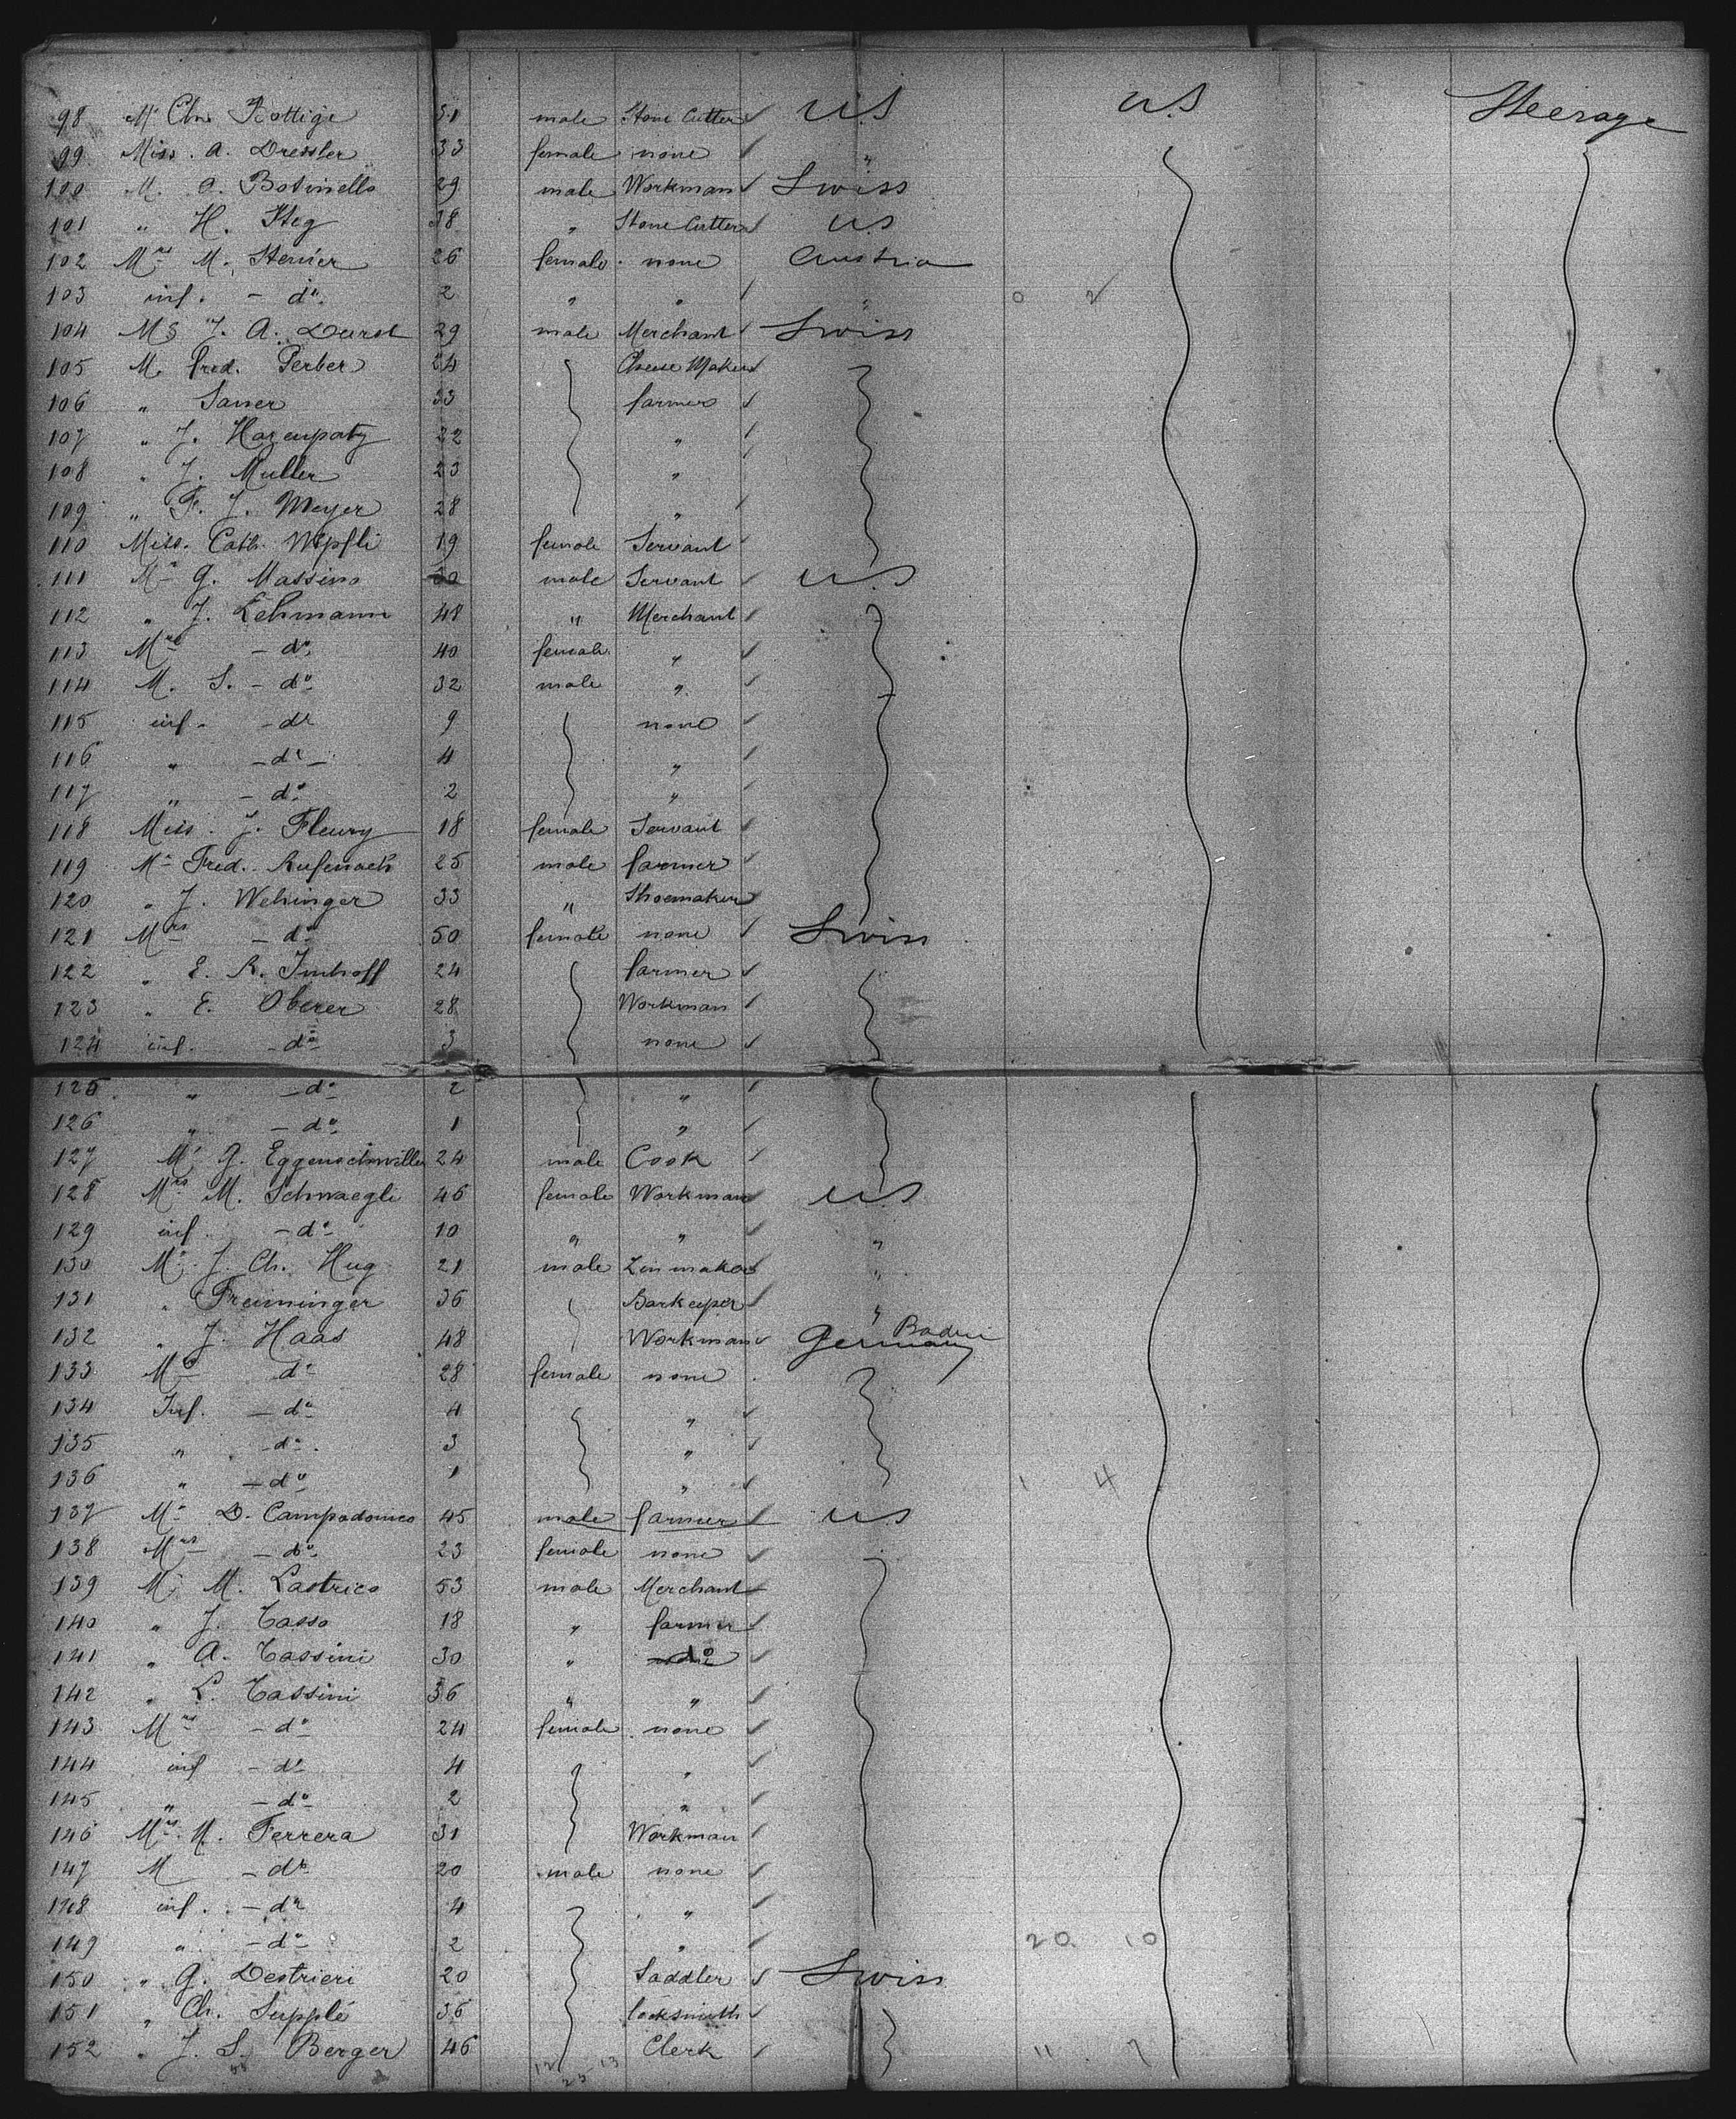 98 Mr Chs Rottige 31 male Stone Cutter US US Steerage
99 Miss. A. Dressler 33 female none "
100 M. A. Botinello 29 male Workman Swiss
101 " H. Steg 38 " Stone Cutter US
102 Mrs M. Stenier 26 female none Austria
103 inf. - do 2 " " " 0 2
104 Mr J. A. Durst 29 male Merchant Swiss
105 M. fred. Gerber 24 Cheese Maker
106 " Sauser 33 farmer
107 " J. 22 "
108 " J. Muller 23 "
109 " F. J. Meyer 28 "
110 Miss. Cath. Wepfli 19 female Servant
111 Mr G. Massino 30 male Servant US
112 " J. Lehmann 48 " Merchant
113 Mrs - do 40 female "
114 M. S. - do 32 male "
115 inf. - do 9 none
116 " - do - 4 "
117 " - do 2 "
118 Miss. J. Fleury 18 female Servant
119 Mr Fred. Rufenach 25 male farmer
120 " J. Wehinger 33 " Shoemaker
121 Mrs - do 50 female none Swiss
122 " E. R. Imhoff 24 farmer
123 " E. Oberer 28 Workman
124 inf. - do 3 none
125 " - do 2 "
126 " - do 1 "
127 Mr G. Eggenschwiller 24 male Cook
128 Mrs M. Schwaegli 46 female Workman US
129 inf. - do 10 " " "
130 Mr J. Ch. Hug 21 male "
131 " Freiminger 36 Barkeeper "
132 " J. Haas 48 Workman Germany Baden
133 Mrs do 28 female none
134 Inf. - do 4 "
135 " - do 3 "
136 " - do 1 " 1 4
137 Mr D. Campodonico 45 male farmer US
138 Mrs - do 23 female none
139 M. M. Lastrico 53 male Merchant
140 " J. Tasso 18 " farmer
141 " A. Tassini 30 " do
142 " L. Tassini 36 " "
143 Mrs - do 24 female none
144 inf - do 4 "
145 " - do 2 "
146 Mrs. M. Ferrera 31 Workman
147 M - do 20 male none
148 inf. - do 4 "
149 " - do 2 " 20 10
150 " G. Destrieri 20 Saddler Swiss
151 " Ch. Supplé 36 locksmith
152 " J. S. Berger 46 Clerk 11 7